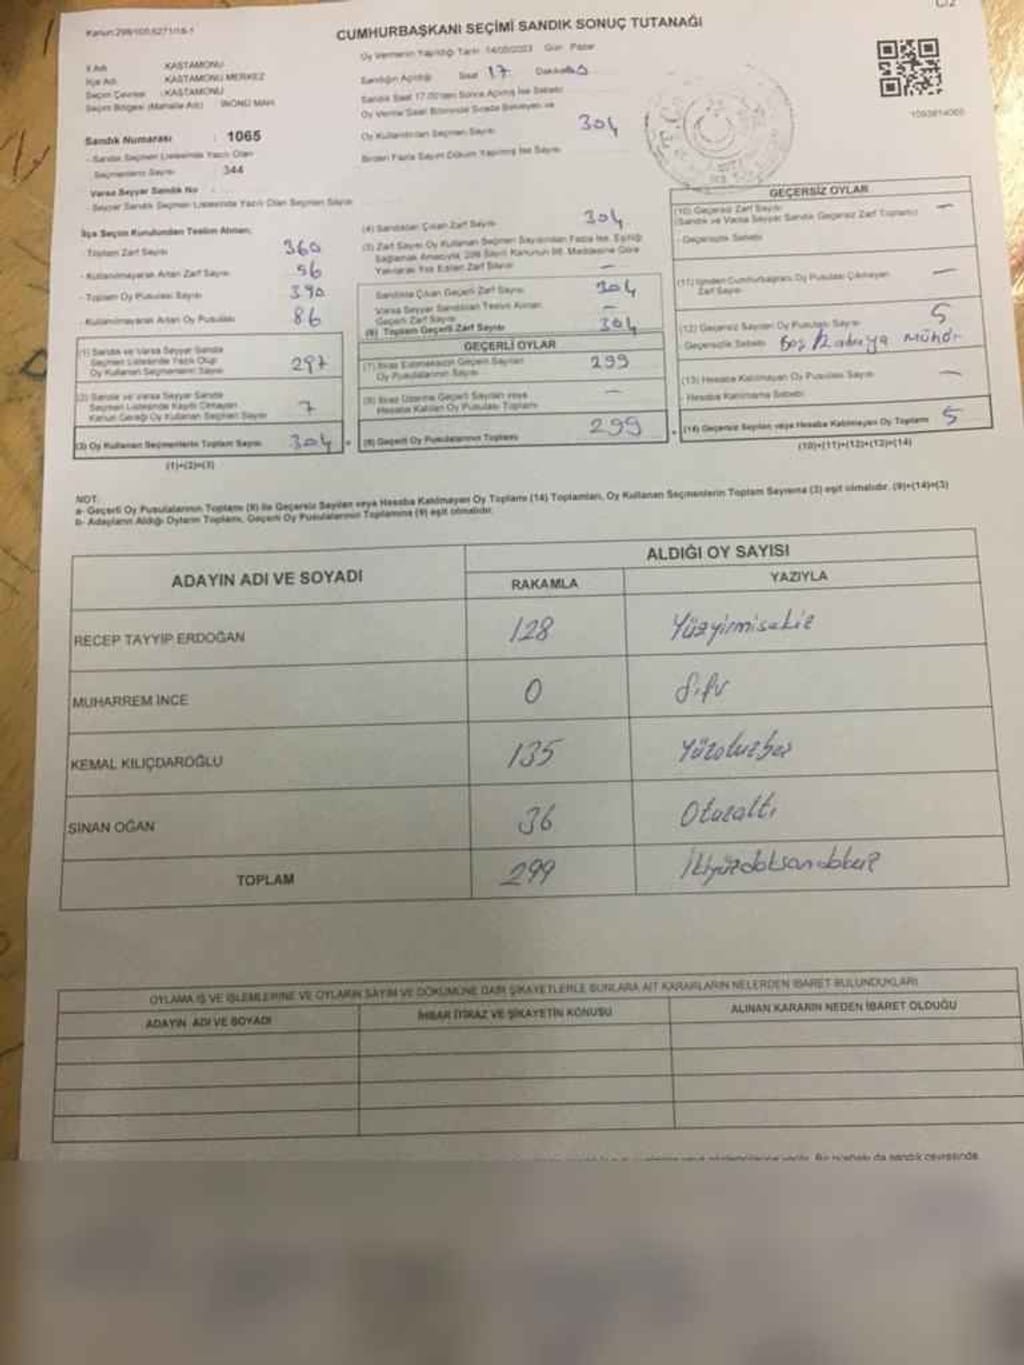 CUMHURBAŞKANI SEÇİMİ SANDIK SONUÇ TUTANAĞI
Oy Vermenin Yapıldığı Tarih 14/05/2023 Gün Pazar
İl Adı KASTAMONU
İlçe Adı KASTAMONU MERKEZ
Seçim Çevresi KASTAMONU
Seçim Bölgesi (Mahalle Adı) İNÖNÜ MAH.
Sandık Numarası : 1065
- Sandık Seçmen Listesinde Yazılı Olan
Seçmenlerin Sayısı 344
Varsa Seyyar Sandık No
- Seyyar Sandık Seçmen Listesinde Yazılı Olan Seçmen Sayısı
Sandığın Açıldığı Saat 17 Dakika
Sandık Saat 17.00'den Sonra Açılmış İse Sebebi
Oy Verme Saati Bitiminde Sırada Bekleyen ve
Oy Kullandırılan Seçmen Sayısı 304
Birden Fazla Sayım Döküm Yapılmış İse Sayısı
İlçe Seçim Kurulundan Teslim Alınan;
- Toplam Zarf Sayısı 360
- Kullanılmayarak Artan Zarf Sayısı 56
- Toplam Oy Pusulası Sayısı 390
- Kullanılmayarak Artan Oy Pusulası 86
(1) Sandık ve Varsa Seyyar Sandık
Seçmen Listesinde Yazılı Olup
Oy Kullanan Seçmenlerin Sayısı 297
(2) Sandık ve Varsa Seyyar Sandık
Seçmen Listesinde Kayıtlı Olmayan
Kanun Gereği Oy Kullanan Seçmen Sayısı 7
(3) Oy Kullanan Seçmenlerin Toplam Sayısı 304
(1)+(2)=(3)
(4) Sandıktan Çıkan Zarf Sayısı 304
(5) Zarf Sayısı Oy Kullanan Seçmen Sayısından Fazla İse, Eşitliği
Sağlamak Amacıyla, 298 Sayılı Kanunun 98. Maddesine Göre
Yakılarak Yok Edilen Zarf Sayısı –
Sandıkta Çıkan Geçerli Zarf Sayısı 304
Varsa Seyyar Sandıktan Teslim Alınan
Geçerli Zarf Sayısı –
(6) Toplam Geçerli Zarf Sayısı 304
GEÇERLİ OYLAR
(7) İtiraz Edilmeksizin Geçerli Sayılan
Oy Pusulalarının Sayısı 299
(8) İtiraz Üzerine Geçerli Sayılan veya
Hesaba Katılan Oy Pusulası Toplamı –
(9) Geçerli Oy Pusulalarının Toplamı 299
GEÇERSİZ OYLAR
(10) Geçersiz Zarf Sayısı
(Sandık ve Varsa Seyyar Sandık Geçersiz Zarf Toplamı) –
- Geçersizlik Sebebi
(11) İçinden Cumhurbaşkanı Oy Pusulası Çıkmayan
Zarf Sayısı –
(12) Geçersiz Sayılan Oy Pusulası Sayısı 5
Geçersizlik Sebebi Boş mühür
(13) Hesaba Katılmayan Oy Pusulası Sayısı –
- Hesaba Katılmama Sebebi
(14) Geçersiz Sayılan veya Hesaba Katılmayan Oy Toplamı 5
(10)+(11)+(12)+(13)=(14)
NOT:
a- Geçerli Oy Pusulalarının Toplamı (9) ile Geçersiz Sayılan veya Hesaba Katılmayan Oy Toplamı (14) Toplamları, Oy Kullanan Seçmenlerin Toplam Sayısına (3) eşit olmalıdır. (9)+(14)=(3)
b- Adayların Aldığı Oyların Toplamı, Geçerli Oy Pusulalarının Toplamına (9) eşit olmalıdır.
ADAYIN ADI VE SOYADI
ALDIĞI OY SAYISI
RAKAMLA YAZIYLA
RECEP TAYYİP ERDOĞAN 128 Yüzyirmisekiz
MUHARREM İNCE 0 Sıfır
KEMAL KILIÇDAROĞLU 135 Yüzotuzbeş
SİNAN OĞAN 36 Otuzaltı
TOPLAM 299 İkiyüzdoksandokuz
OYLAMA İŞ VE İŞLEMLERİNE VE OYLARIN SAYIM VE DÖKÜMÜNE DAİR ŞİKAYETLERLE BUNLARA AİT KARARLARIN NELERDEN İBARET BULUNDUKLARI
ADAYIN ADI VE SOYADI
İHBAR İTİRAZ VE ŞİKAYETİN KONUSU
ALINAN KARARIN NEDEN İBARET OLDUĞU